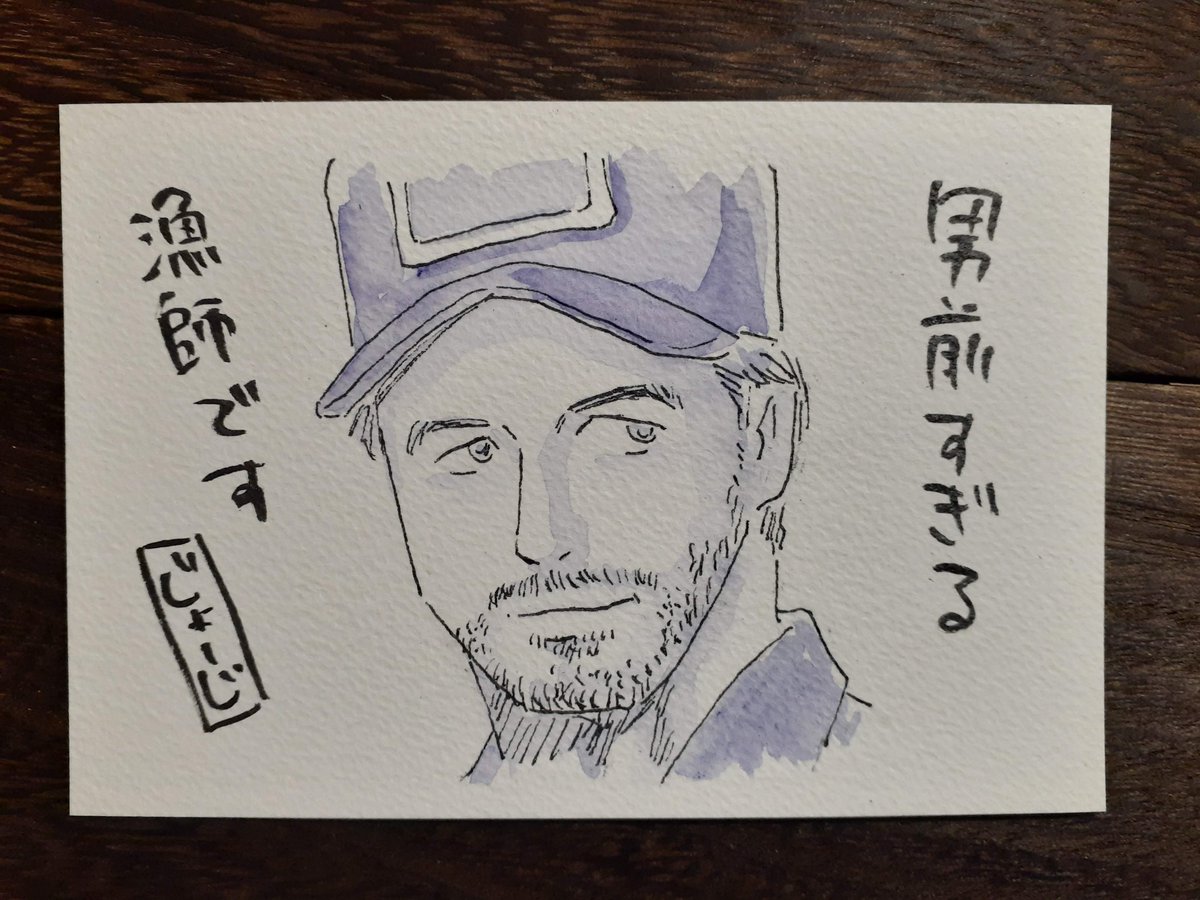 男前すぎる
漁師です
じょーじ